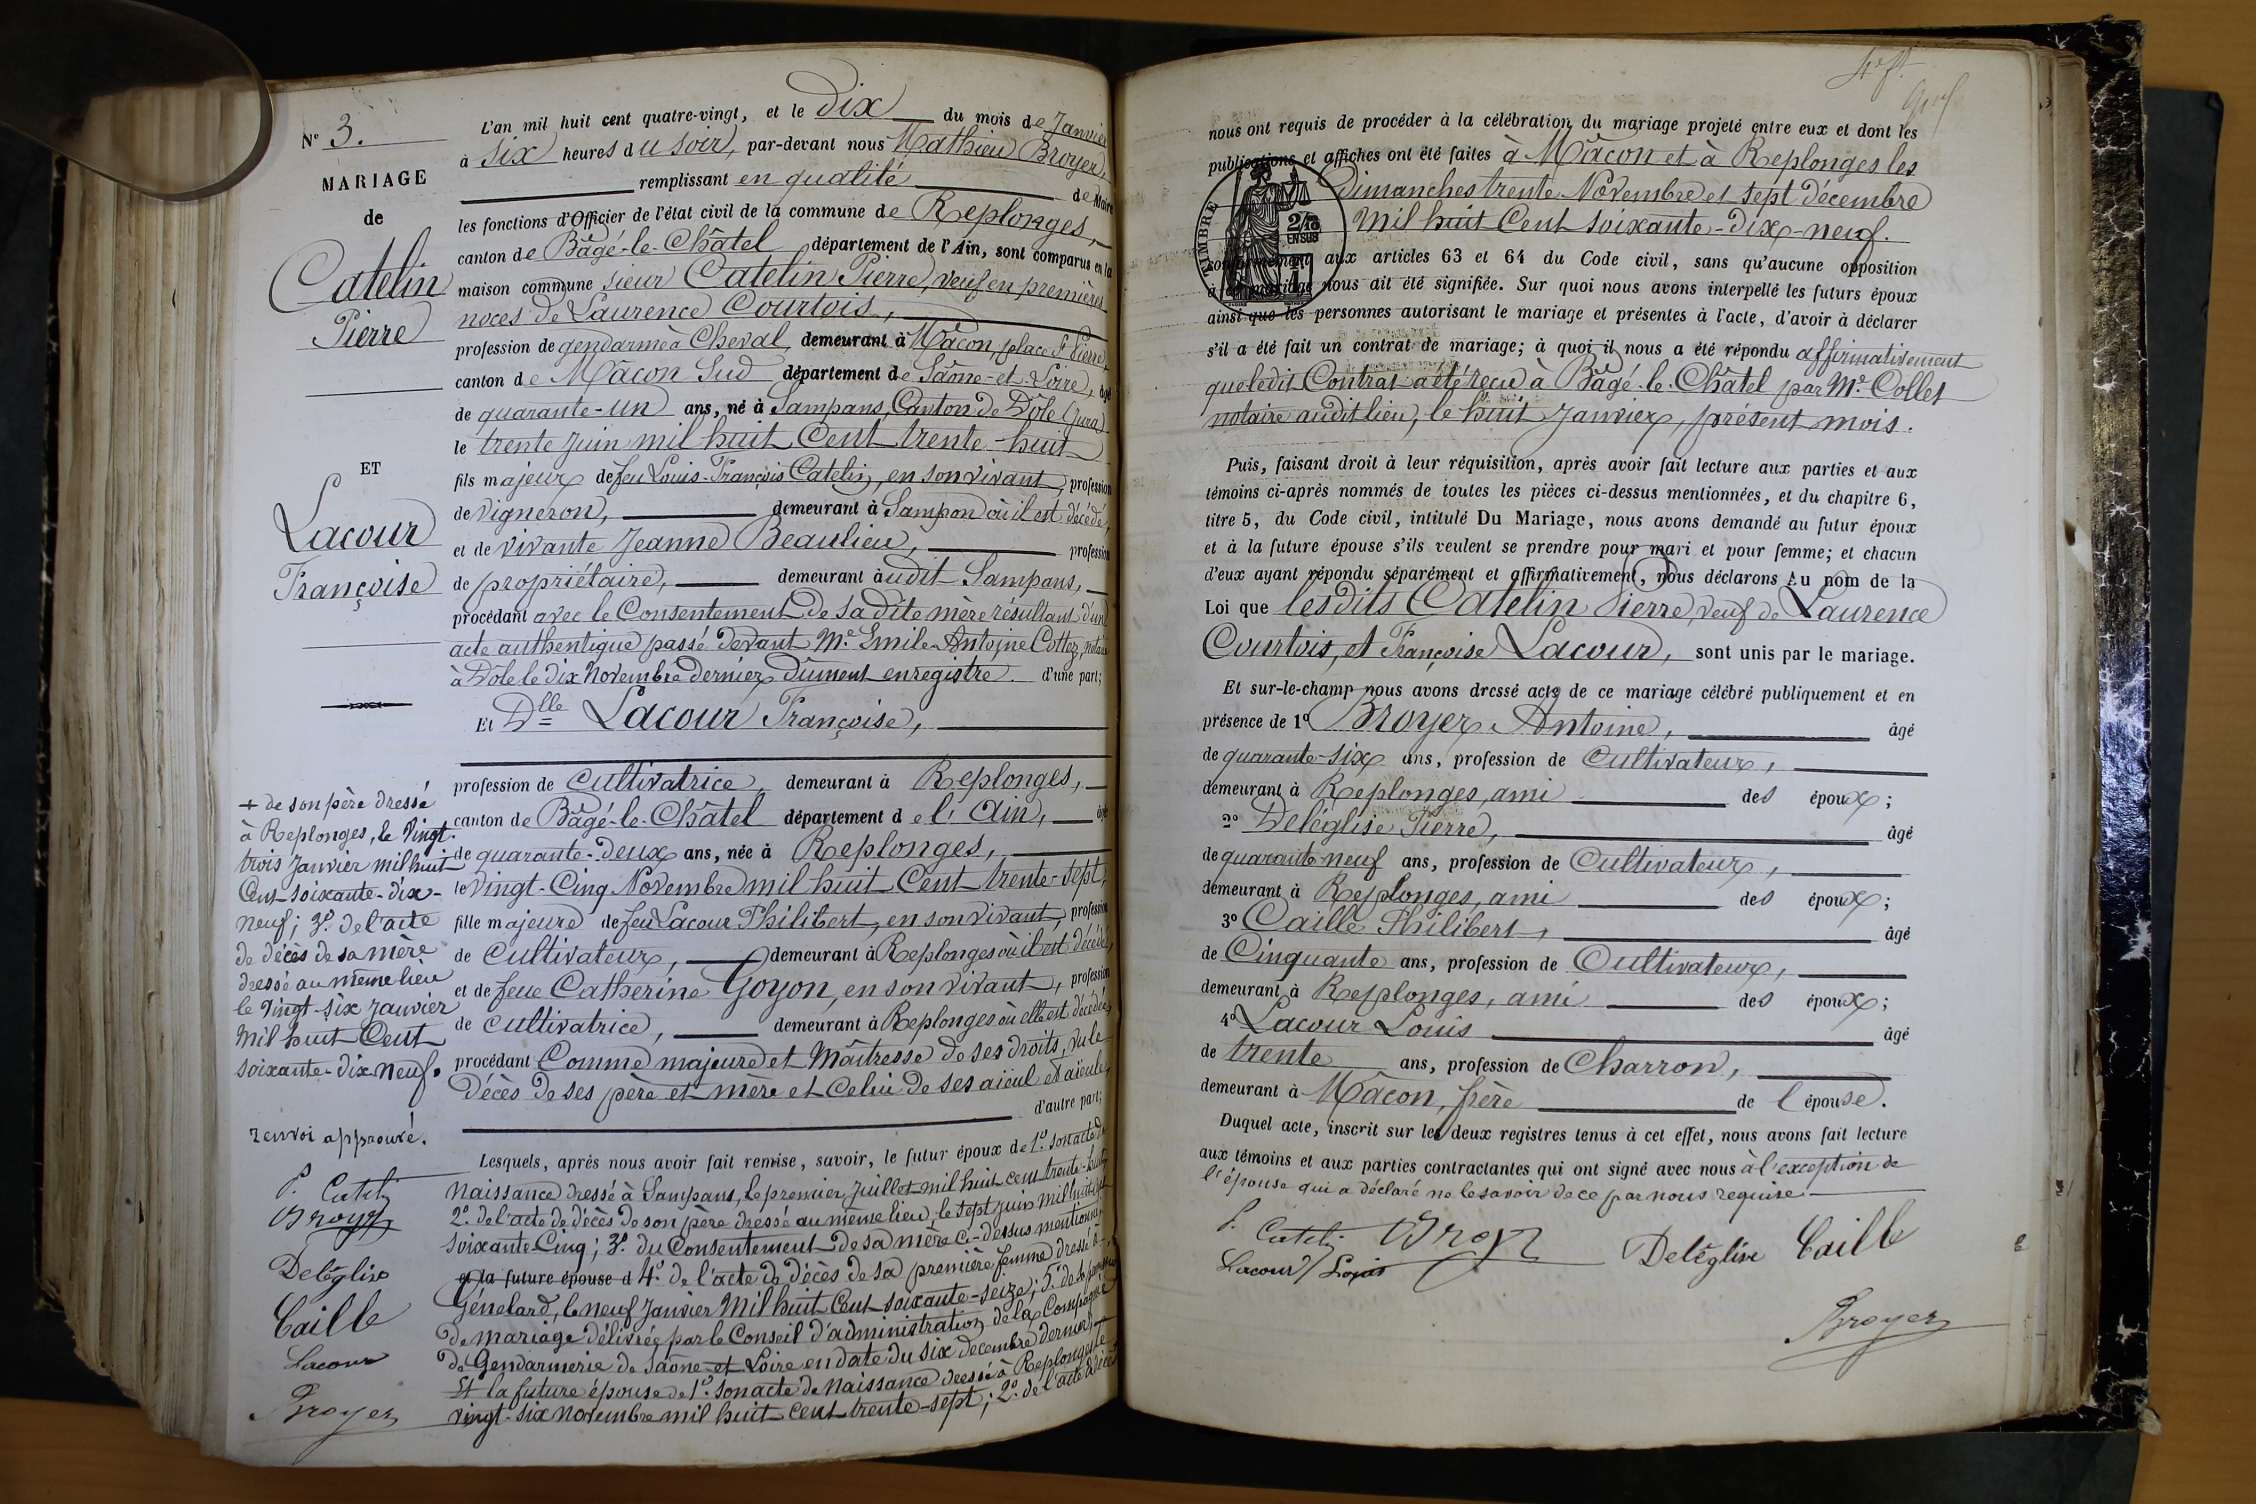 N° 3.
MARIAGE
de
Catelin
Pierre
ET
Lacour
Françoise
+ de son père dressé
à Replonges, le vingt-
trois Janvier mil huit
Cent soixante-dix-
neuf; 3° de l'acte
de décès de sa mère
dressé au même lieu
le vingt-six Janvier
Mil huit Cent
soixante-dix neuf.
renvoi approuvé.
P. Catelin
Broyer
Deléglise
Caille
Lacour
Broyer
L'an mil huit cent quatre-vingt, et le Dix du mois de Janvier
à six heures du soir, par-devant nous Mathieu Broyer,
remplissant en qualité de Maire
les fonctions d'Officier de l'état civil de la commune de Replonges,
canton de Bâgé-le-Châtel département de l'Ain, sont comparus en la
maison commune sieur Catelin Pierre, veuf en premières
noces de Laurence Courtois,
profession de gendarme à Cheval, demeurant à Mâcon, place St Pierre,
canton de Mâcon Sud département de Saône-et-Loire, âgé
de quarante-un ans, né à Sampans, Canton de Dôle (Jura)
le trente Juin mil huit Cent trente-huit
fils majeur de feu Louis-François Catelin, en son vivant, profession
de vigneron, demeurant à Sampon où il est décédé,
et de vivante Jeanne Beaulieu, profession
de propriétaire, demeurant audit Sampans,
procédant avec le Consentement de sa dite mère résultant d'un
acte authentique passé devant Me Emile-Antoine Cottez, notaire
à Dôle le dix Novembre dernier, dûment enregistré. d'une part;
Et Dlle Lacour Françoise,
profession de Cultivatrice, demeurant à Replonges,
canton de Bâgé-le-Châtel département de l'Ain, âgée
de quarante-deux ans, née à Replonges,
le vingt-Cinq Novembre mil huit Cent trente-sept,
fille majeure de feu Lacour Philibert, en son vivant, profession
de Cultivateur, demeurant à Replonges où il est décédé,
et de feue Catherine Goyon, en son vivant, profession
de cultivatrice, demeurant à Replonges où elle est décédée,
procédant Comme majeure et Maîtresse de ses droits, vu le
Décès de ses père et mère et Celui de ses aïeul et aïeule,
d'autre part;
Lesquels, après nous avoir fait remise, savoir, le futur époux de 1° son acte de
Naissance dressé à Sampans, le premier Juillet mil huit cent trente-huit;
2° de l'acte de décès de son père dressé au même lieu, le sept juin mil huit cent
soixante-Cinq; 3° du Consentement de sa mère ci-dessus mentionné,
et la future épouse d 4° de l'acte de décès de sa première femme dressé à
Génelard, le neuf Janvier Mil huit Cent soixante-seize; 5° de la permission
de mariage délivrée par le Conseil d'administration de la Compagnie
de Gendarmerie de Saône-et-Loire en date du six décembre dernier,
Et la future épouse de 1° son acte de Naissance dressé à Replonges le
vingt-six novembre mil huit cent trente-sept; 2° de l'acte de décès
nous ont requis de procéder à la célébration du mariage projeté entre eux et dont les
publications et affiches ont été faites à Mâcon et à Replonges les
Dimanches trente Novembre et sept décembre
Mil huit Cent soixante-dix-neuf.
TIMBRE
2/10
EN SUS
conformément aux articles 63 et 64 du Code civil, sans qu'aucune opposition
à ce mariage nous ait été signifiée. Sur quoi nous avons interpellé les futurs époux
ainsi que les personnes autorisant le mariage et présentes à l'acte, d'avoir à déclarer
s'il a été fait un contrat de mariage; à quoi il nous a été répondu affirmativement
que ledit Contrat a été reçu à Bâgé-le-Châtel par Me Collet
notaire audit lieu, le huit Janvier, présent mois.
Puis, faisant droit à leur réquisition, après avoir fait lecture aux parties et aux
témoins ci-après nommés de toutes les pièces ci-dessus mentionnées, et du chapitre 6,
titre 5, du Code civil, intitulé Du Mariage, nous avons demandé au futur époux
et à la future épouse s'ils veulent se prendre pour mari et pour femme; et chacun
d'eux ayant répondu séparément et affirmativement, nous déclarons Au nom de la
Loi que lesdits Catelin Pierre, veuf de Laurence
Courtois, et Françoise Lacour, sont unis par le mariage.
Et sur-le-champ nous avons dressé acte de ce mariage célébré publiquement et en
présence de 1° Broyer Antoine, âgé
de quarante-six ans, profession de Cultivateur,
demeurant à Replonges, ami des époux;
2° Deléglise Pierre, âgé
de quarante-neuf ans, profession de Cultivateur,
demeurant à Replonges, ami des époux;
3° Caille Philibert, âgé
de Cinquante ans, profession de Cultivateur,
demeurant à Replonges, ami des époux;
4° Lacour Louis âgé
de trente ans, profession de Charron,
demeurant à Mâcon, frère de l'épouse.
Duquel acte, inscrit sur les deux registres tenus à cet effet, nous avons fait lecture
aux témoins et aux parties contractantes qui ont signé avec nous à l'exception de
l'épouse qui a déclaré ne le savoir de ce par nous requise.
P. Catelin Broyer Deléglise Caille
Lacour Louis
Broyer